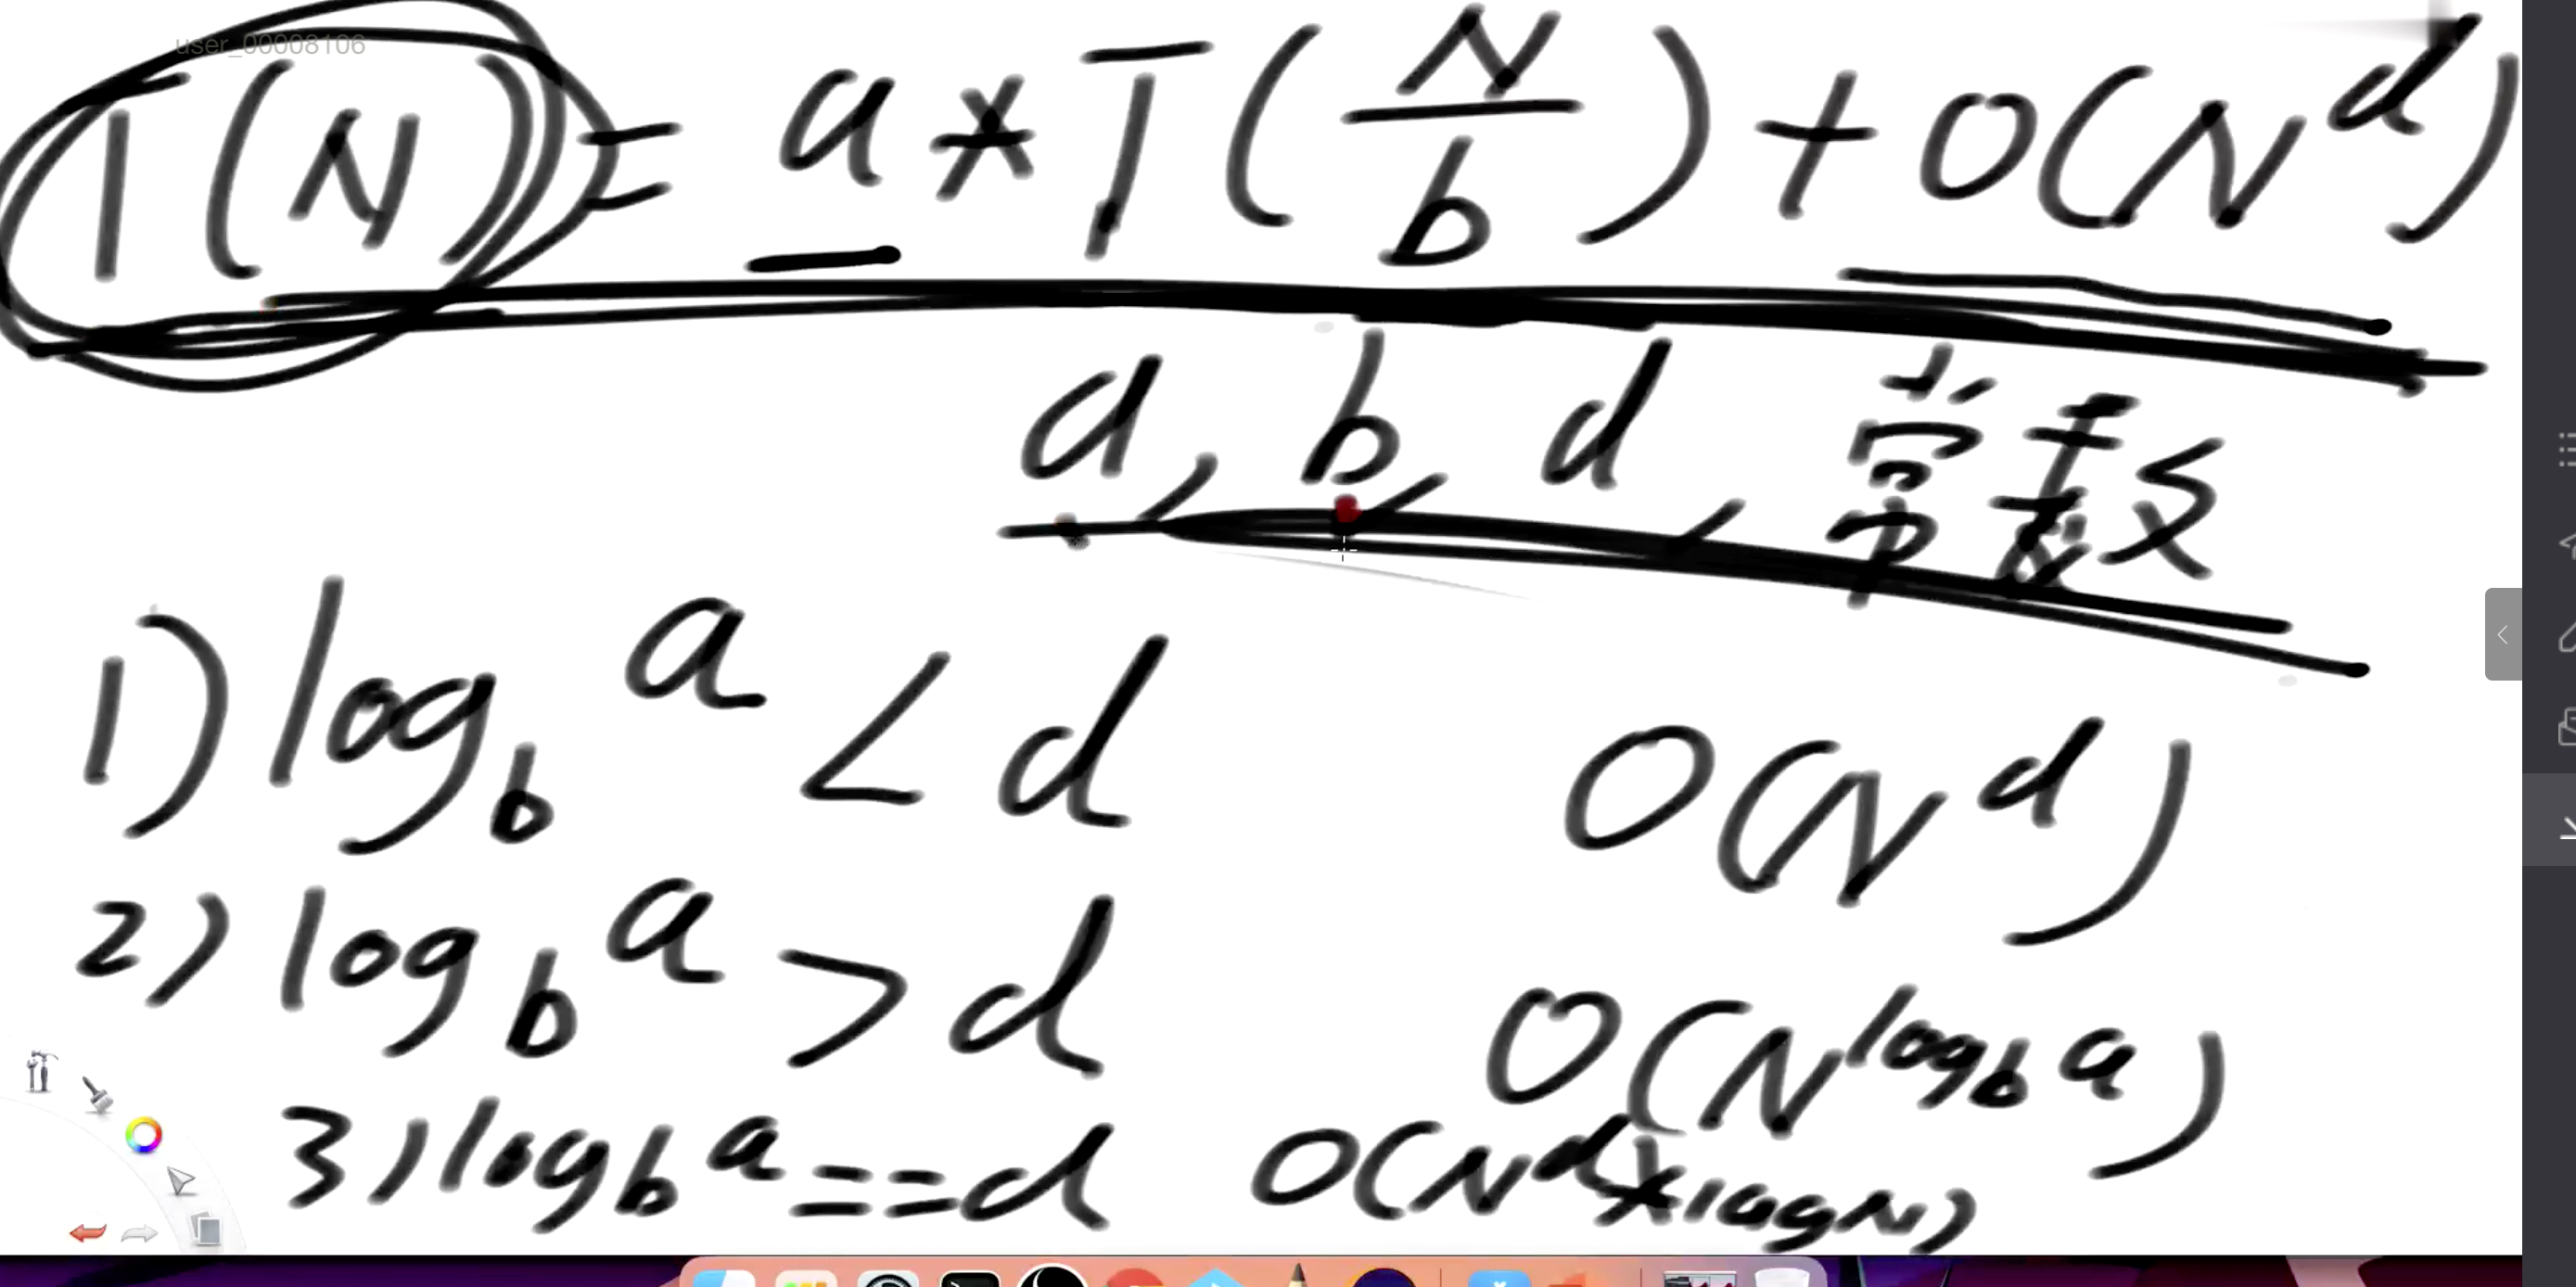 user_00008106
T(N) = a * T(N/b) + O(N^d)
a, b, d, 常数
1) log_b^a < d O(N^d)
2) log_b^a > d O(N^{log_b a})
3) log_b^a == d O(N^d * logN)